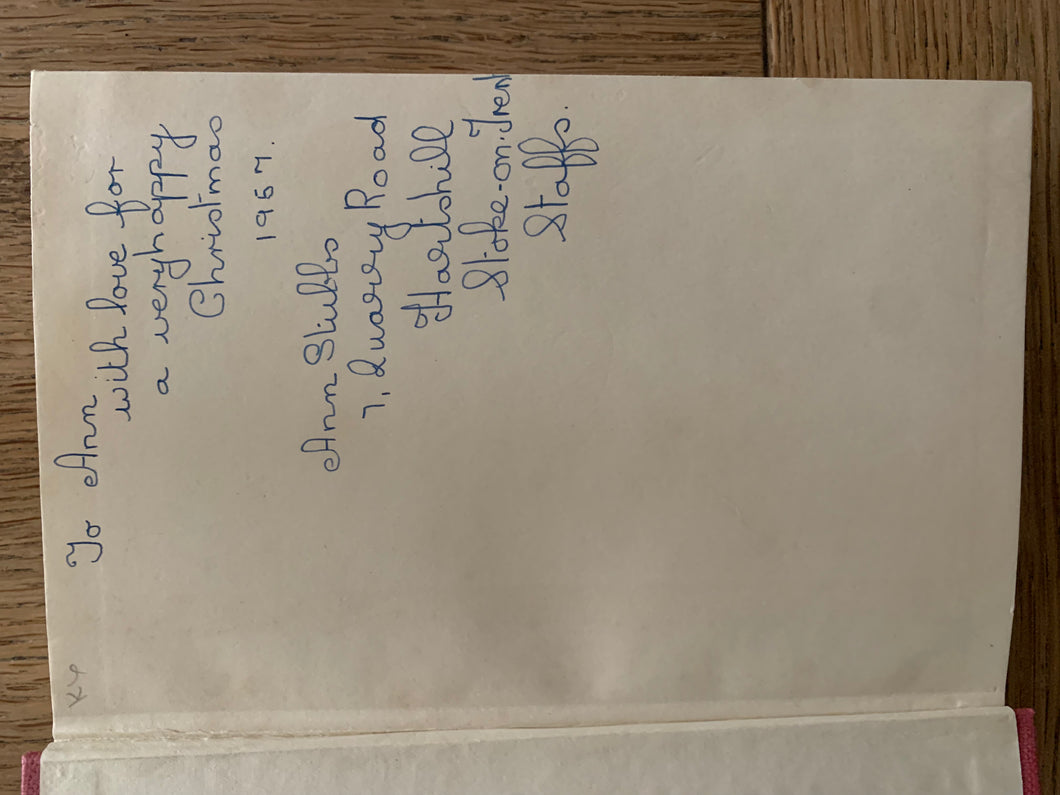 To Ann
with love for
a very happy
Christmas
1957.
Ann Stubbs
7, Quarry Road
Hartshill
Stoke-on-Trent
Staffs.